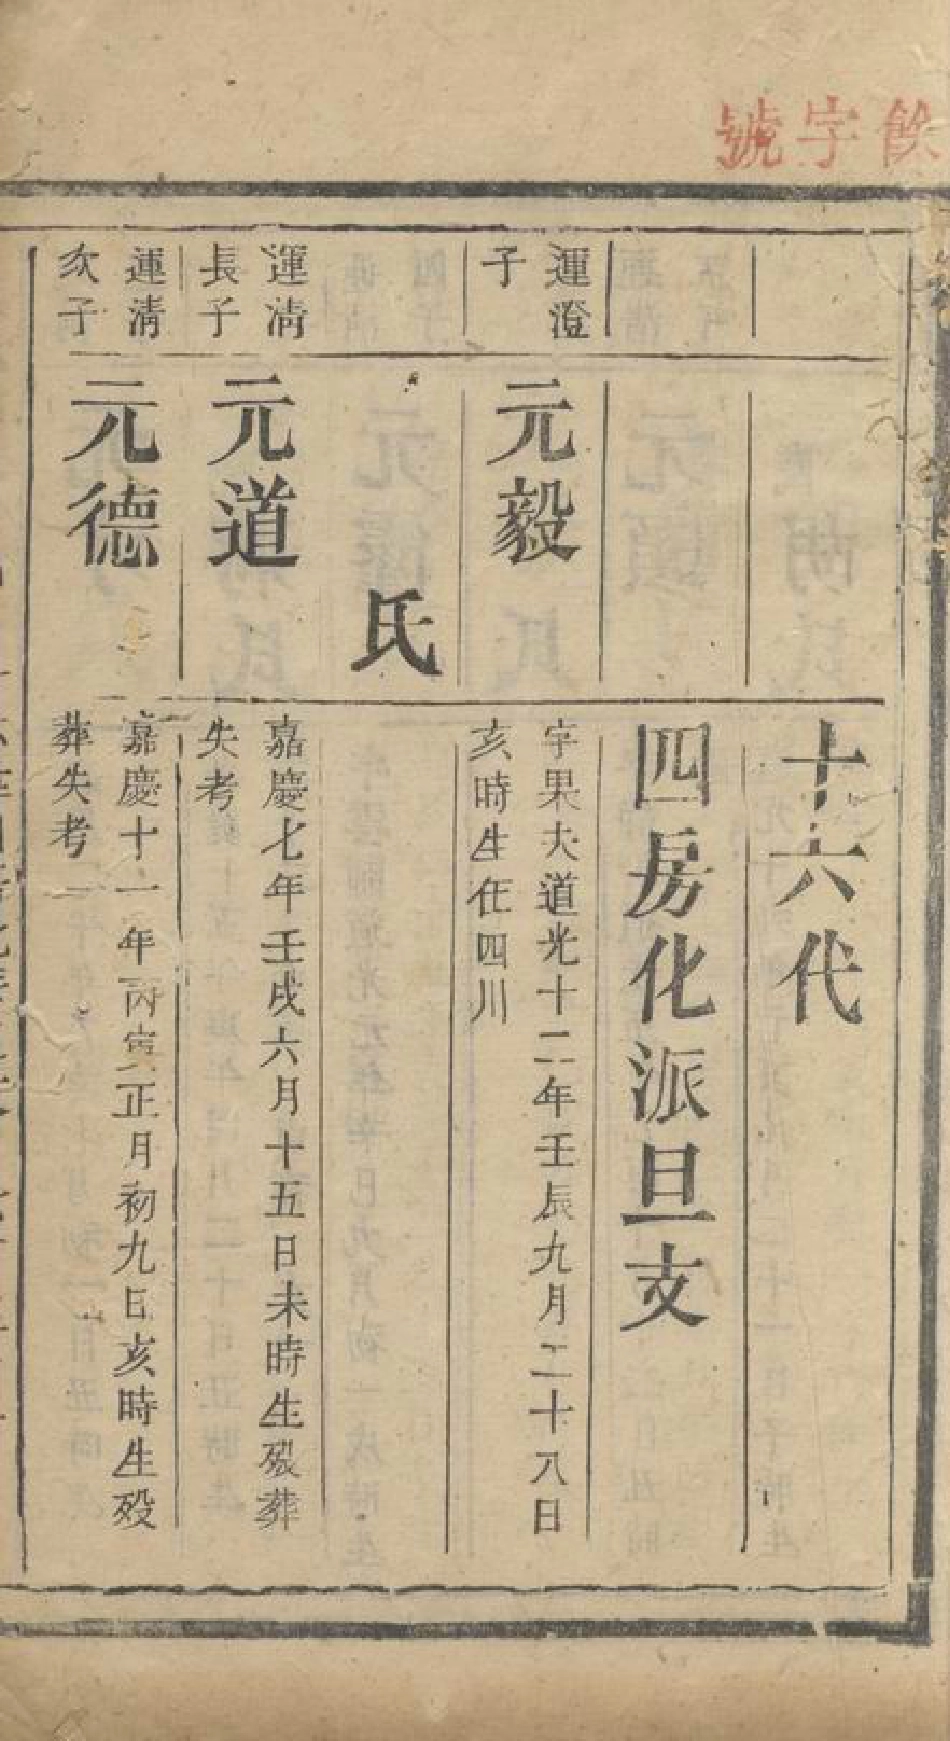 餘字號
十六代
四房化派旦支
運澄
子
元毅
字果夫道光十二年壬辰九月二十八日
亥時生在四川
氏
運清
長子
元道
嘉慶七年壬戌六月十五日未時生歿葬
失考
運清
次子
元德
嘉慶十一年丙寅正月初九日亥時生歿
葬失考